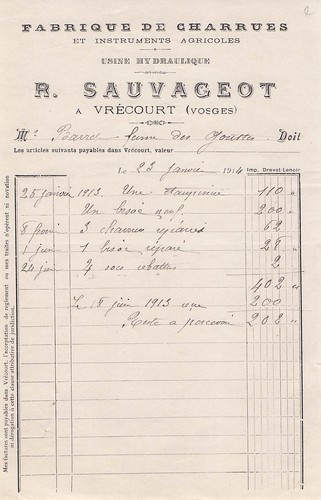 2
FABRIQUE DE CHARRUES
ET INSTRUMENTS AGRICOLES
USINE HYDRAULIQUE
R. SAUVAGEOT
A VRÉCOURT (VOSGES)
Mr Barré ferme des Gouttes Doit
Les articles suivants payables dans Vrécourt, valeur
Le 23 Janvier 1914 Imp. Drevet-Lenoir
25 janvier 1913. Une 110 "
Un 200 "
8 3 charrues réparées 62
1 juin 1 réparé 28 "
24 juin 4 socs rebattus 2
402 "
Le 18 juin 1913 200
Reste à percevoir 202 "
Mes factures sont payables dans Vrécourt, l'acceptation de règlement ou mes traites n'opèrent ni novation
ni dérogation à cette clause attributive de juridiction.